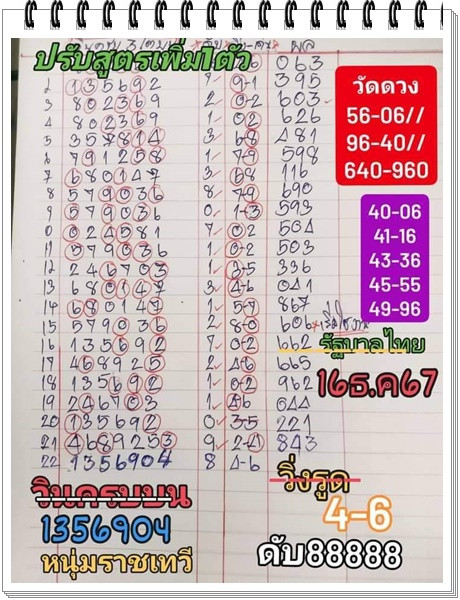 ปรับสูตรเพิ่ม1ตัว
ผล
063
2 135692 7 9-1 395
3 802369 2 0-2 603
4 802369 1 02 626
5 357814 3 68 481
6 791258 1 7-9 598
7 680147 3 68 116
8 579036 8 7-9 690
9 579036 0 1-3 593
0 024581 7 02 504
11 579036 1 02 503
12 246703 1 3-5 336
13 680147 3 4-6 041
14 680147 1 5-7 867
15 579036 2 8-0 606
16 135692 7 0-2 662
17 468925 2 46 665
18 135692 1 0-2 962
19 246703 1 46 044
20 135692 0 3-5 221
21 4689253 9 2-4 843
22 1356904 8 4-6
วัดดวง
56-06//
96-40//
640-960
40-06
41-16
43-36
45-55
49-96
รัฐบาลไทย
16ธ.ค67
วินครบบน
1356904
หนุ่มราชเทวี
วิ่งรูด
4-6
ดับ88888